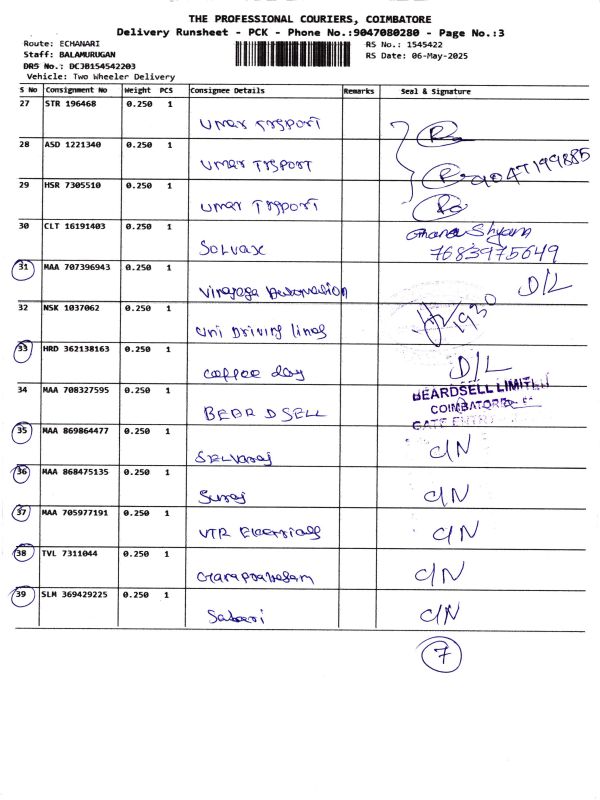 THE PROFESSIONAL COURIERS, COIMBATORE
Delivery Runsheet - PCK - Phone No.:9047080280 - Page No.:3
Route: ECHANARI RS No.: 1545422
Staff: BALAMURUGAN RS Date: 06-May-2025
DRS No.: DCJB154542203
Vehicle: Two Wheeler Delivery
S No Consignment No Weight PCS Consignee Details Remarks Seal & Signature
27 STR 196468 0.250 1
umar Trsport
28 ASD 1221340 0.250 1
umar Trsport 9047199885
29 HSR 7305510 0.250 1
umar Trsport
30 CLT 16191403 0.250 1 Shyam
Solvax 7683975649
31 MAA 707396943 0.250 1 D/L
32 NSK 1037062 0.250 1
uni Driving lines
33 HRD 362138163 0.250 1 D/L
coffee day
34 MAA 708327595 0.250 1 BEARDSELL LIMITED
BEARDSELL COIMBATORE
GATE ENTRY
35 MAA 869864477 0.250 1 C/N
Selvaraj
36 MAA 868475135 0.250 1 C/N
Suraj
37 MAA 705977191 0.250 1 C/N
VTR
38 TVL 7311044 0.250 1 C/N
39 SLM 369429225 0.250 1 C/N
Sabari
7